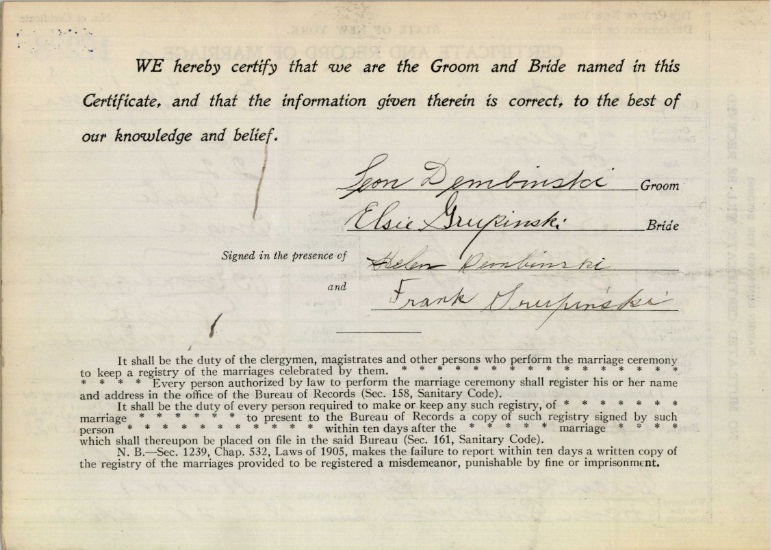 WE hereby certify that we are the Groom and Bride named in this
Certificate, and that the information given therein is correct, to the best of
our knowledge and belief.
Leon Dembinski Groom
Elsie Grupinski Bride
Signed in the presence of Helen Dembinski
and Frank Grupinski
It shall be the duty of the clergymen, magistrates and other persons who perform the marriage ceremony
to keep a registry of the marriages celebrated by them. * * * * * * * * * * * * * * *
* * * * Every person authorized by law to perform the marriage ceremony shall register his or her name
and address in the office of the Bureau of Records (Sec. 158, Sanitary Code).
It shall be the duty of every person required to make or keep any such registry, of * * * * * * *
marriage * * * * * to present to the Bureau of Records a copy of such registry signed by such
person * * * * * * * * * * within ten days after the * * * * * marriage * * * *
which shall thereupon be placed on file in the said Bureau (Sec. 161, Sanitary Code).
N. B.—Sec. 1239, Chap. 532, Laws of 1905, makes the failure to report within ten days a written copy of
the registry of the marriages provided to be registered a misdemeanor, punishable by fine or imprisonment.